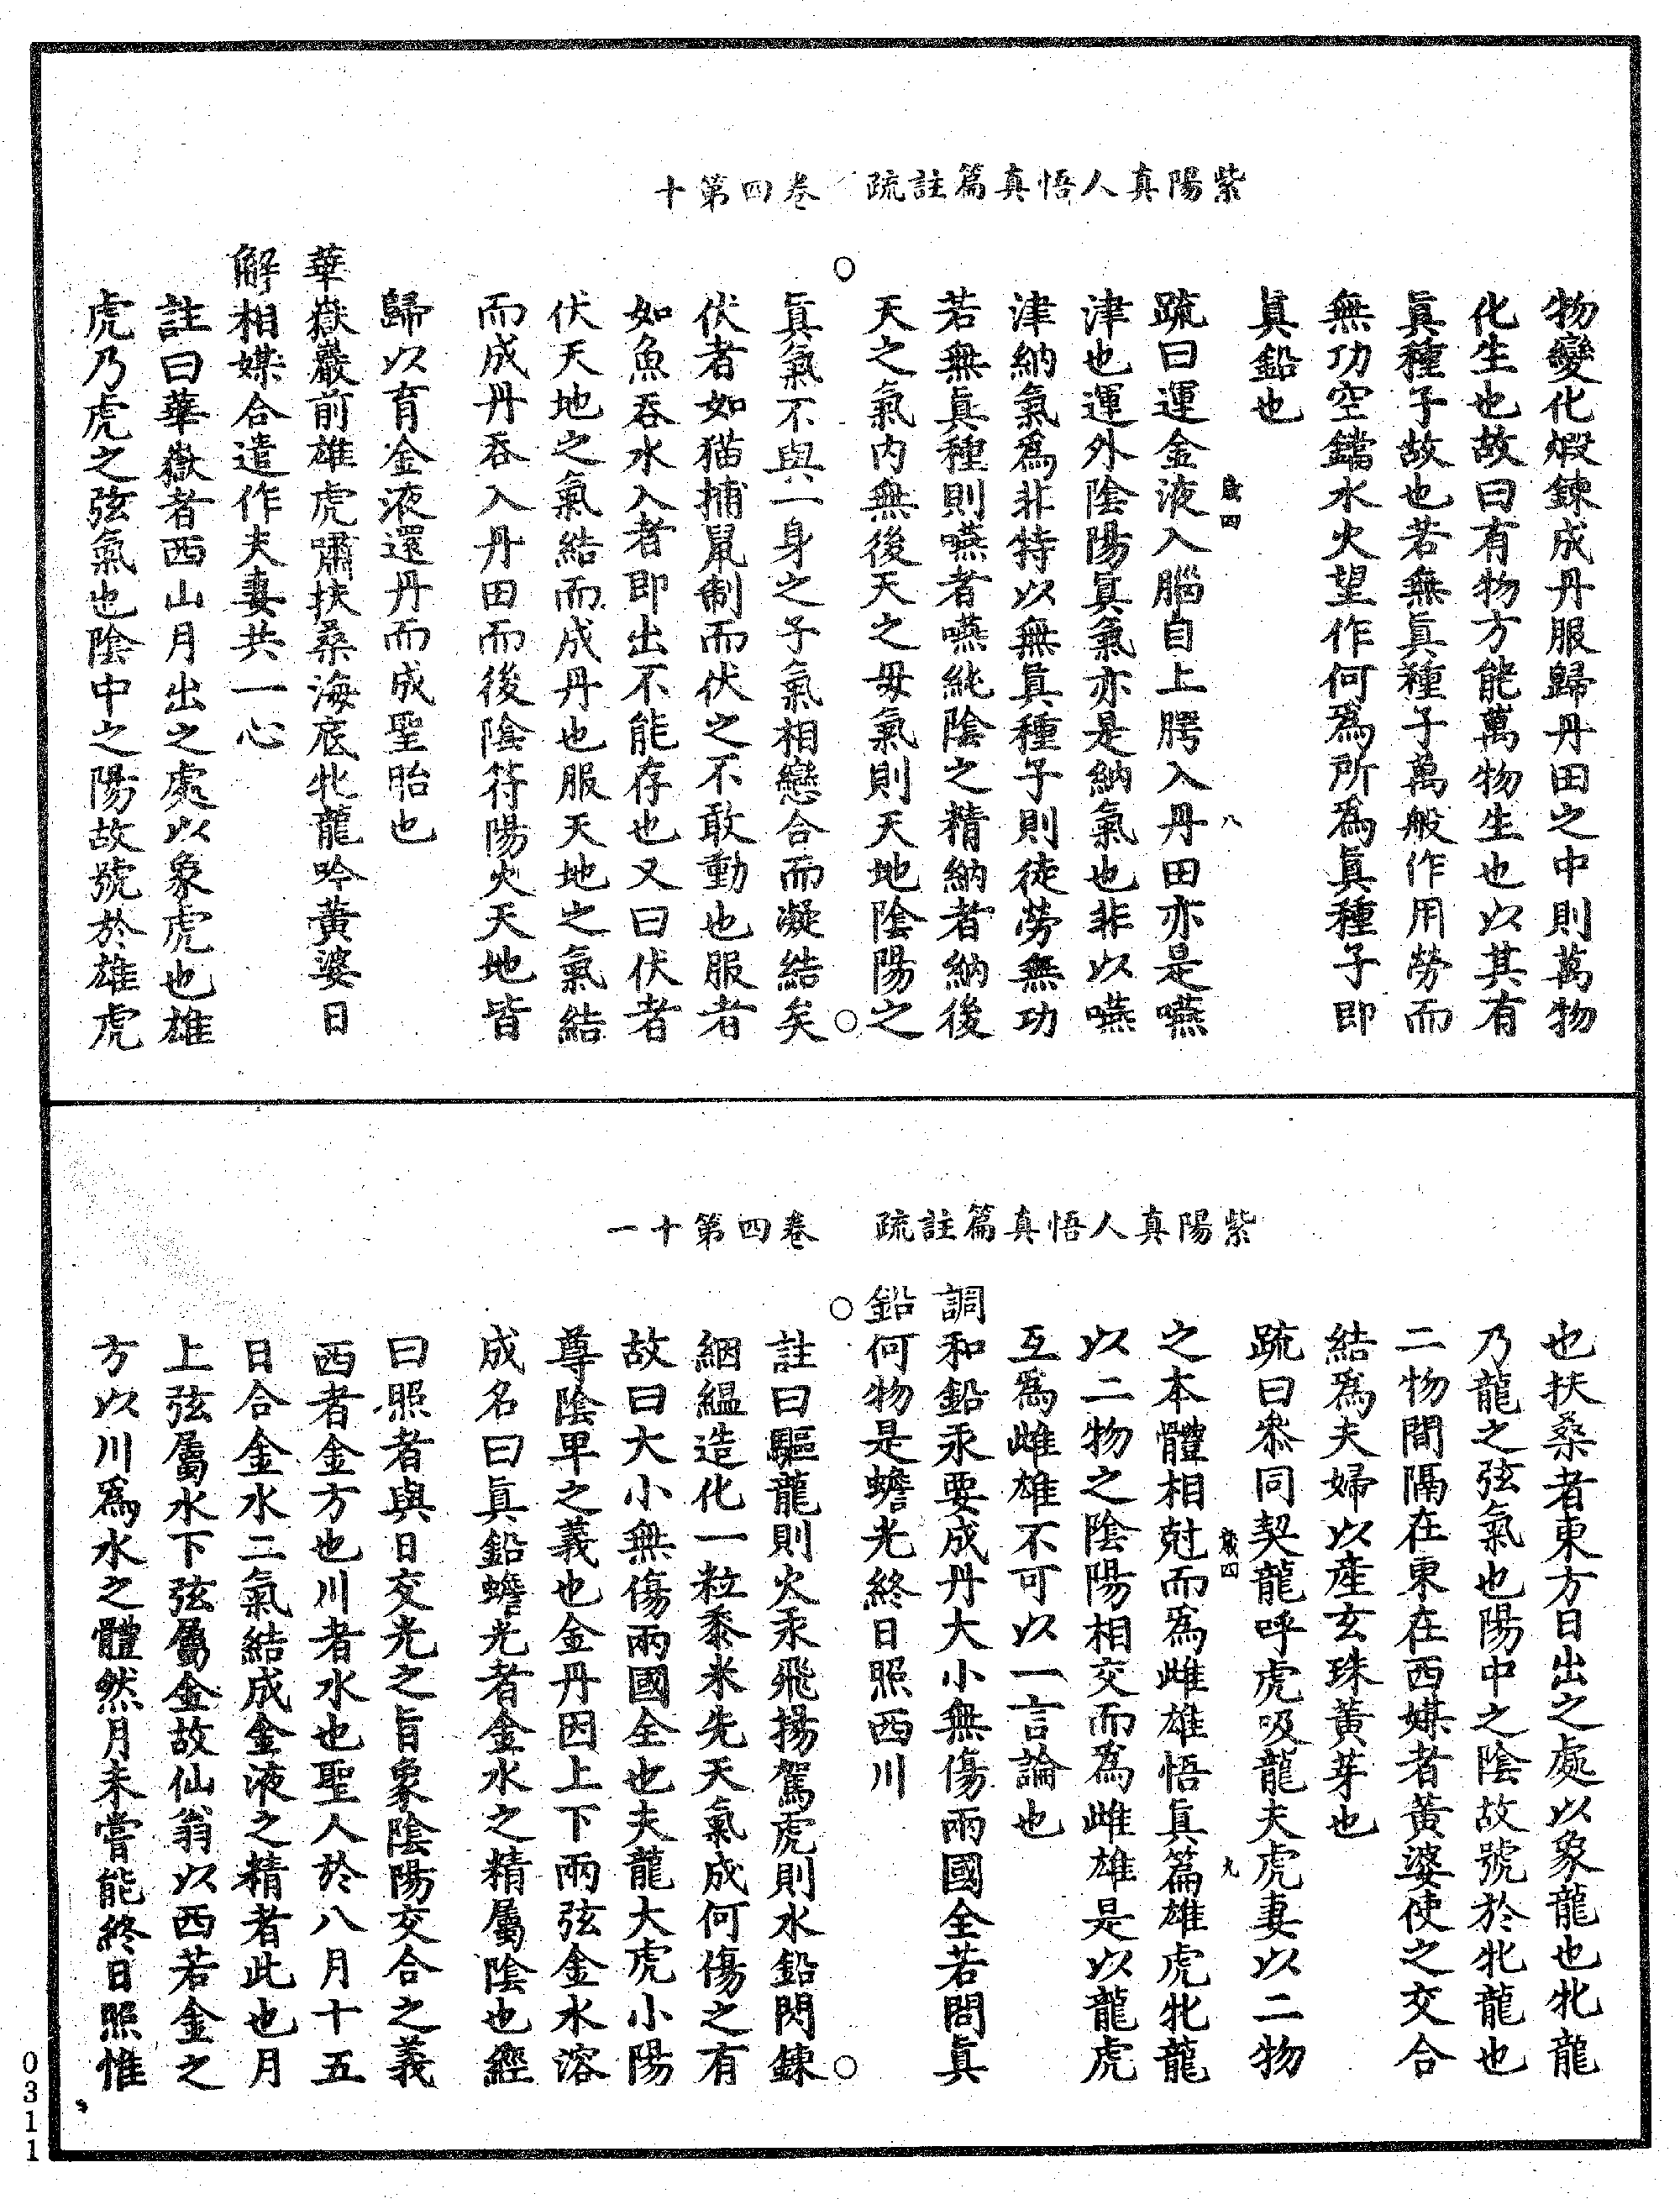 紫陽真人悟真篇註疏　卷四第十
物變化煆鍊成丹服歸丹田之中則萬物
化生也故曰有物方能萬物生也以其有
眞種子故也若無眞種子萬般作用勞而
無功空鐺水火望作何爲所爲眞種子即
眞鉛也
歲四　八
疏曰運金液入腦自上腭入丹田亦是嚥
津也運外陰陽眞氣亦是納氣也非以嚥
津納氣爲非特以無眞種子則徒勞無功
若無眞種則嚥者嚥純陰之精納者納後
天之氣內無後天之母氣則天地陰陽之
眞氣不與一身之子氣相戀合而凝結矣
伏者如猫捕鼠制而伏之不敢動也服者
如魚吞水入者即出不能存也又曰伏者
伏天地之氣結而成丹也服天地之氣結
而成丹吞入丹田而後陰符陽火天地皆
歸以育金液還丹而成聖胎也
華嶽巖前雄虎嘯扶桑海底牝龍吟黃婆日
解相媒合遣作夫妻共一心
註曰華嶽者西山月出之處以象虎也雄
虎乃虎之弦氣也陰中之陽故號於雄虎
紫陽真人悟真篇註疏　卷四第十一
也扶桑者東方日出之處以象龍也牝龍
乃龍之弦氣也陽中之陰故號於牝龍也
二物間隔在東在西媒者黃婆使之交合
結爲夫婦以產玄珠黃芽也
疏曰叅同契龍呼虎吸龍夫虎妻以二物
歲四　九
之本體相尅而爲雌雄悟眞篇雄虎牝龍
以二物之陰陽相交而爲雌雄是以龍虎
互爲雌雄不可以一言論也
調和鉛汞要成丹大小無傷兩國全若問眞
鉛何物是蟾光終日照西川
註曰驅龍則火汞飛揚駕虎則水鉛閃鍊
絪縕造化一粒黍米先天氣成何傷之有
故曰大小無傷兩國全也夫龍大虎小陽
尊陰卑之義也金丹因上下兩弦金水溶
成名曰眞鉛蟾光者金水之精屬陰也經
曰照者與日交光之旨象陰陽交合之義
西者金方也川者水也聖人於八月十五
日合金水二氣結成金液之精者此也月
上弦屬水下弦屬金故仙翁以西若金之
方以川爲水之體然月未嘗能終日照惟
0311